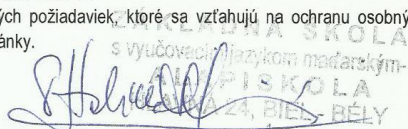 ých požiadaviek, ktoré sa vzťahujú na ochranu osobný
ánky.
ZÁKLADNÁ ŠKOLA
s vyučovacím jazykom maďarským-
ALAPISKOLA
24, BIEL - BÉLY